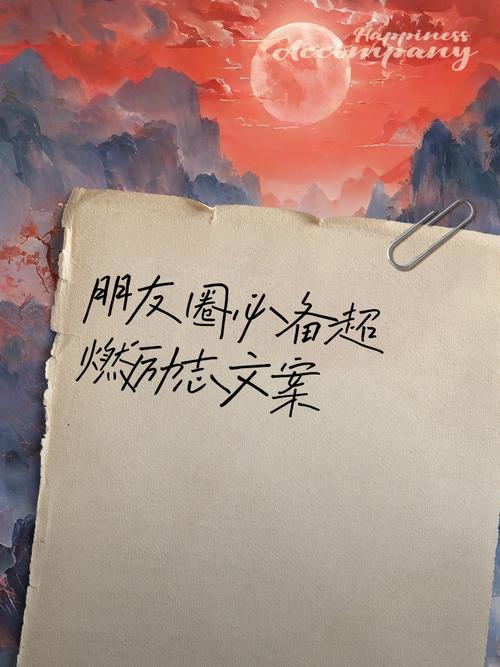 Happiness
Accompany
朋友圈必备超
燃励志文案